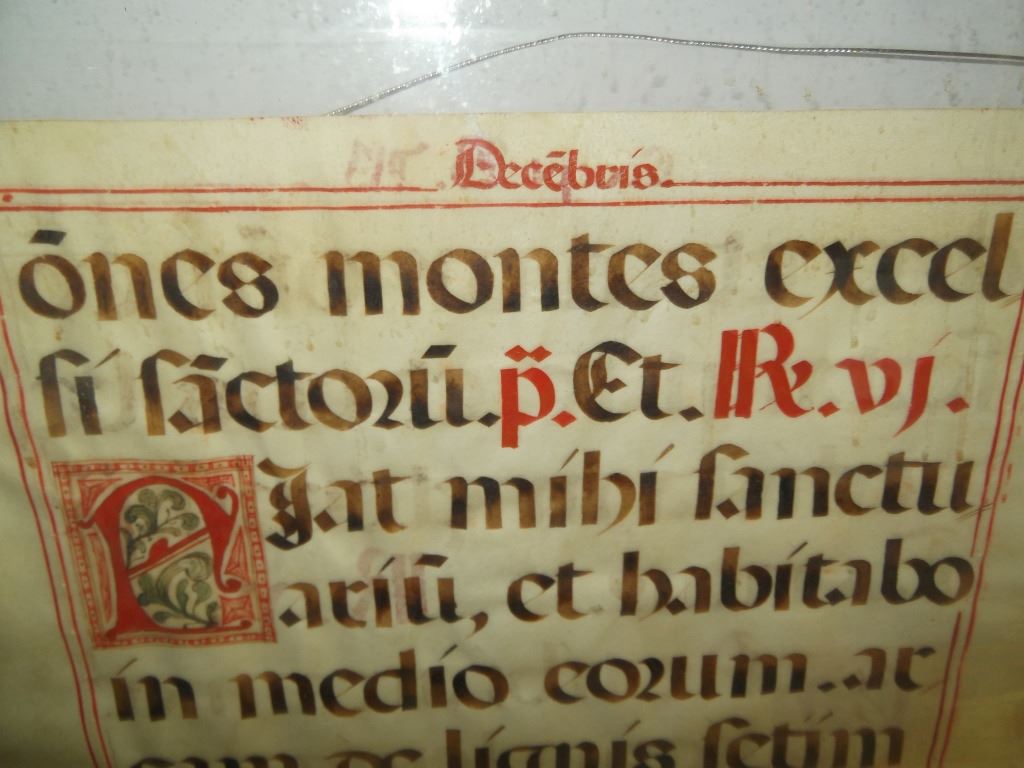 Decēbris.
ōnes montes excel
si sāctorū. p̈. Et. R. vj.
FIat mihi sanctu
ariū, et habitabo
in medio eorum. ar
cam de lignis setim